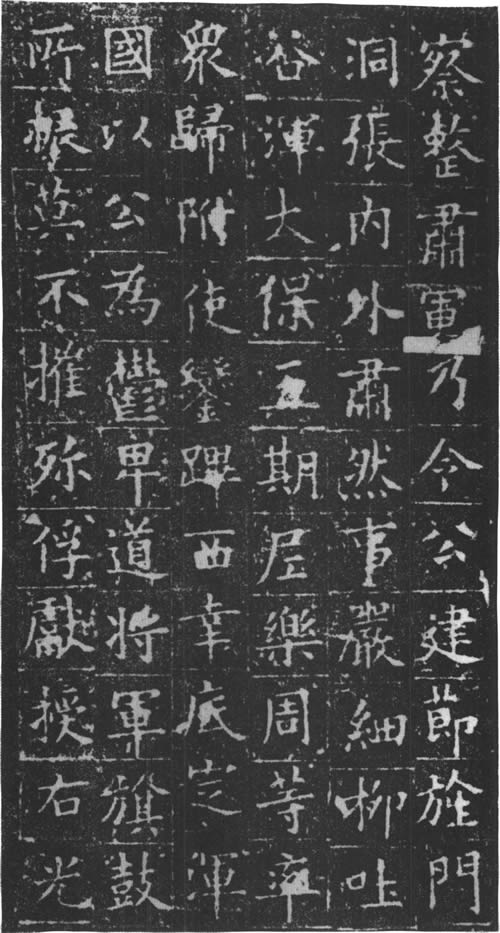 察整肅軍乃令公建節旌門
洞張內外肅然事嚴細柳吐
谷渾大保五期尼樂周等率
衆歸附使鑾蹕西幸底定渾
國以公為鬱卑道將軍旗鼓
所振莫不摧殄俘獻授右光